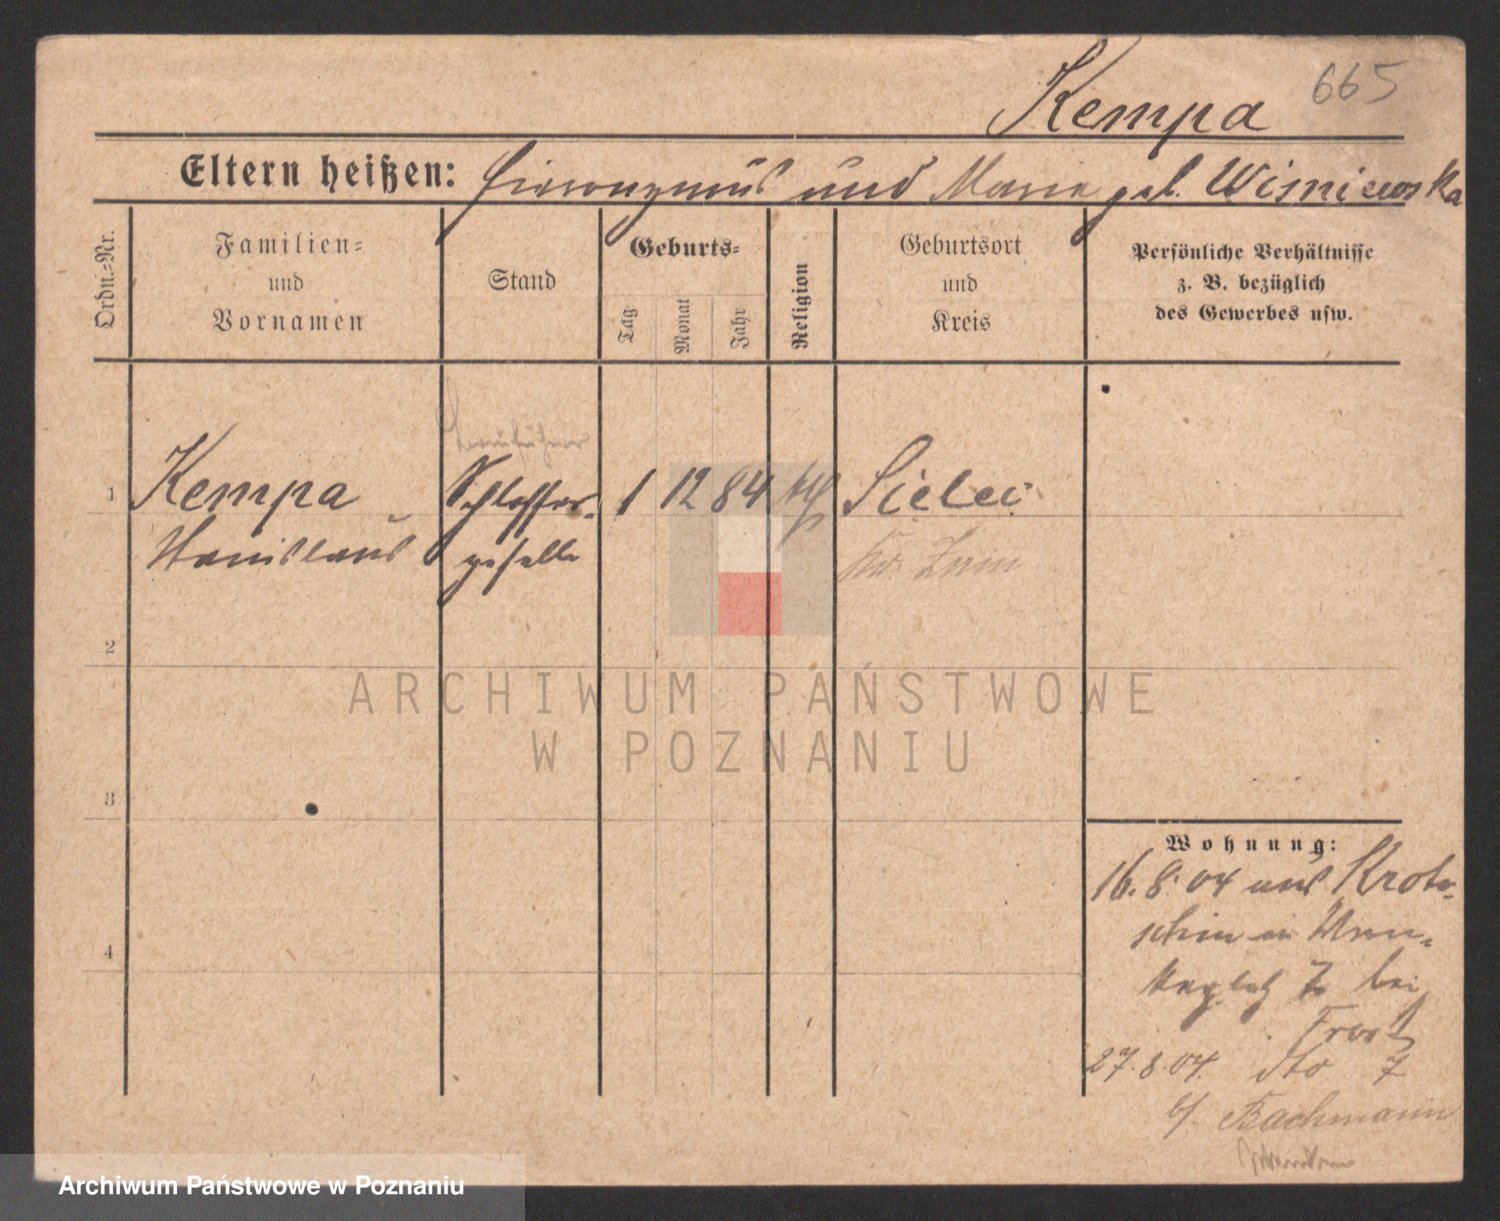 Kempa 665
Eltern heißen: Hieronymus und Maria geb. Wisniewska
Ordn.=Nr.
Familien=
und
Vornamen
Stand
Geburts=
Tag
Monat
Jahr
Religion
Geburtsort
und
Kreis
Persönliche Verhältnisse
z. B. bezüglich
des Gewerbes usw.
1 Kempa Schlosser- 1 12 84 kth Sielec
Stanislaus geselle Krs. Znin
2
3
4
Wohnung:
16.8.04 aus Kroto-
schin
7 bei
Frost
27.8.04. dto 7
b/ Bachmann
ARCHIWUM PAŃSTWOWE
W POZNANIU
Archiwum Państwowe w Poznaniu